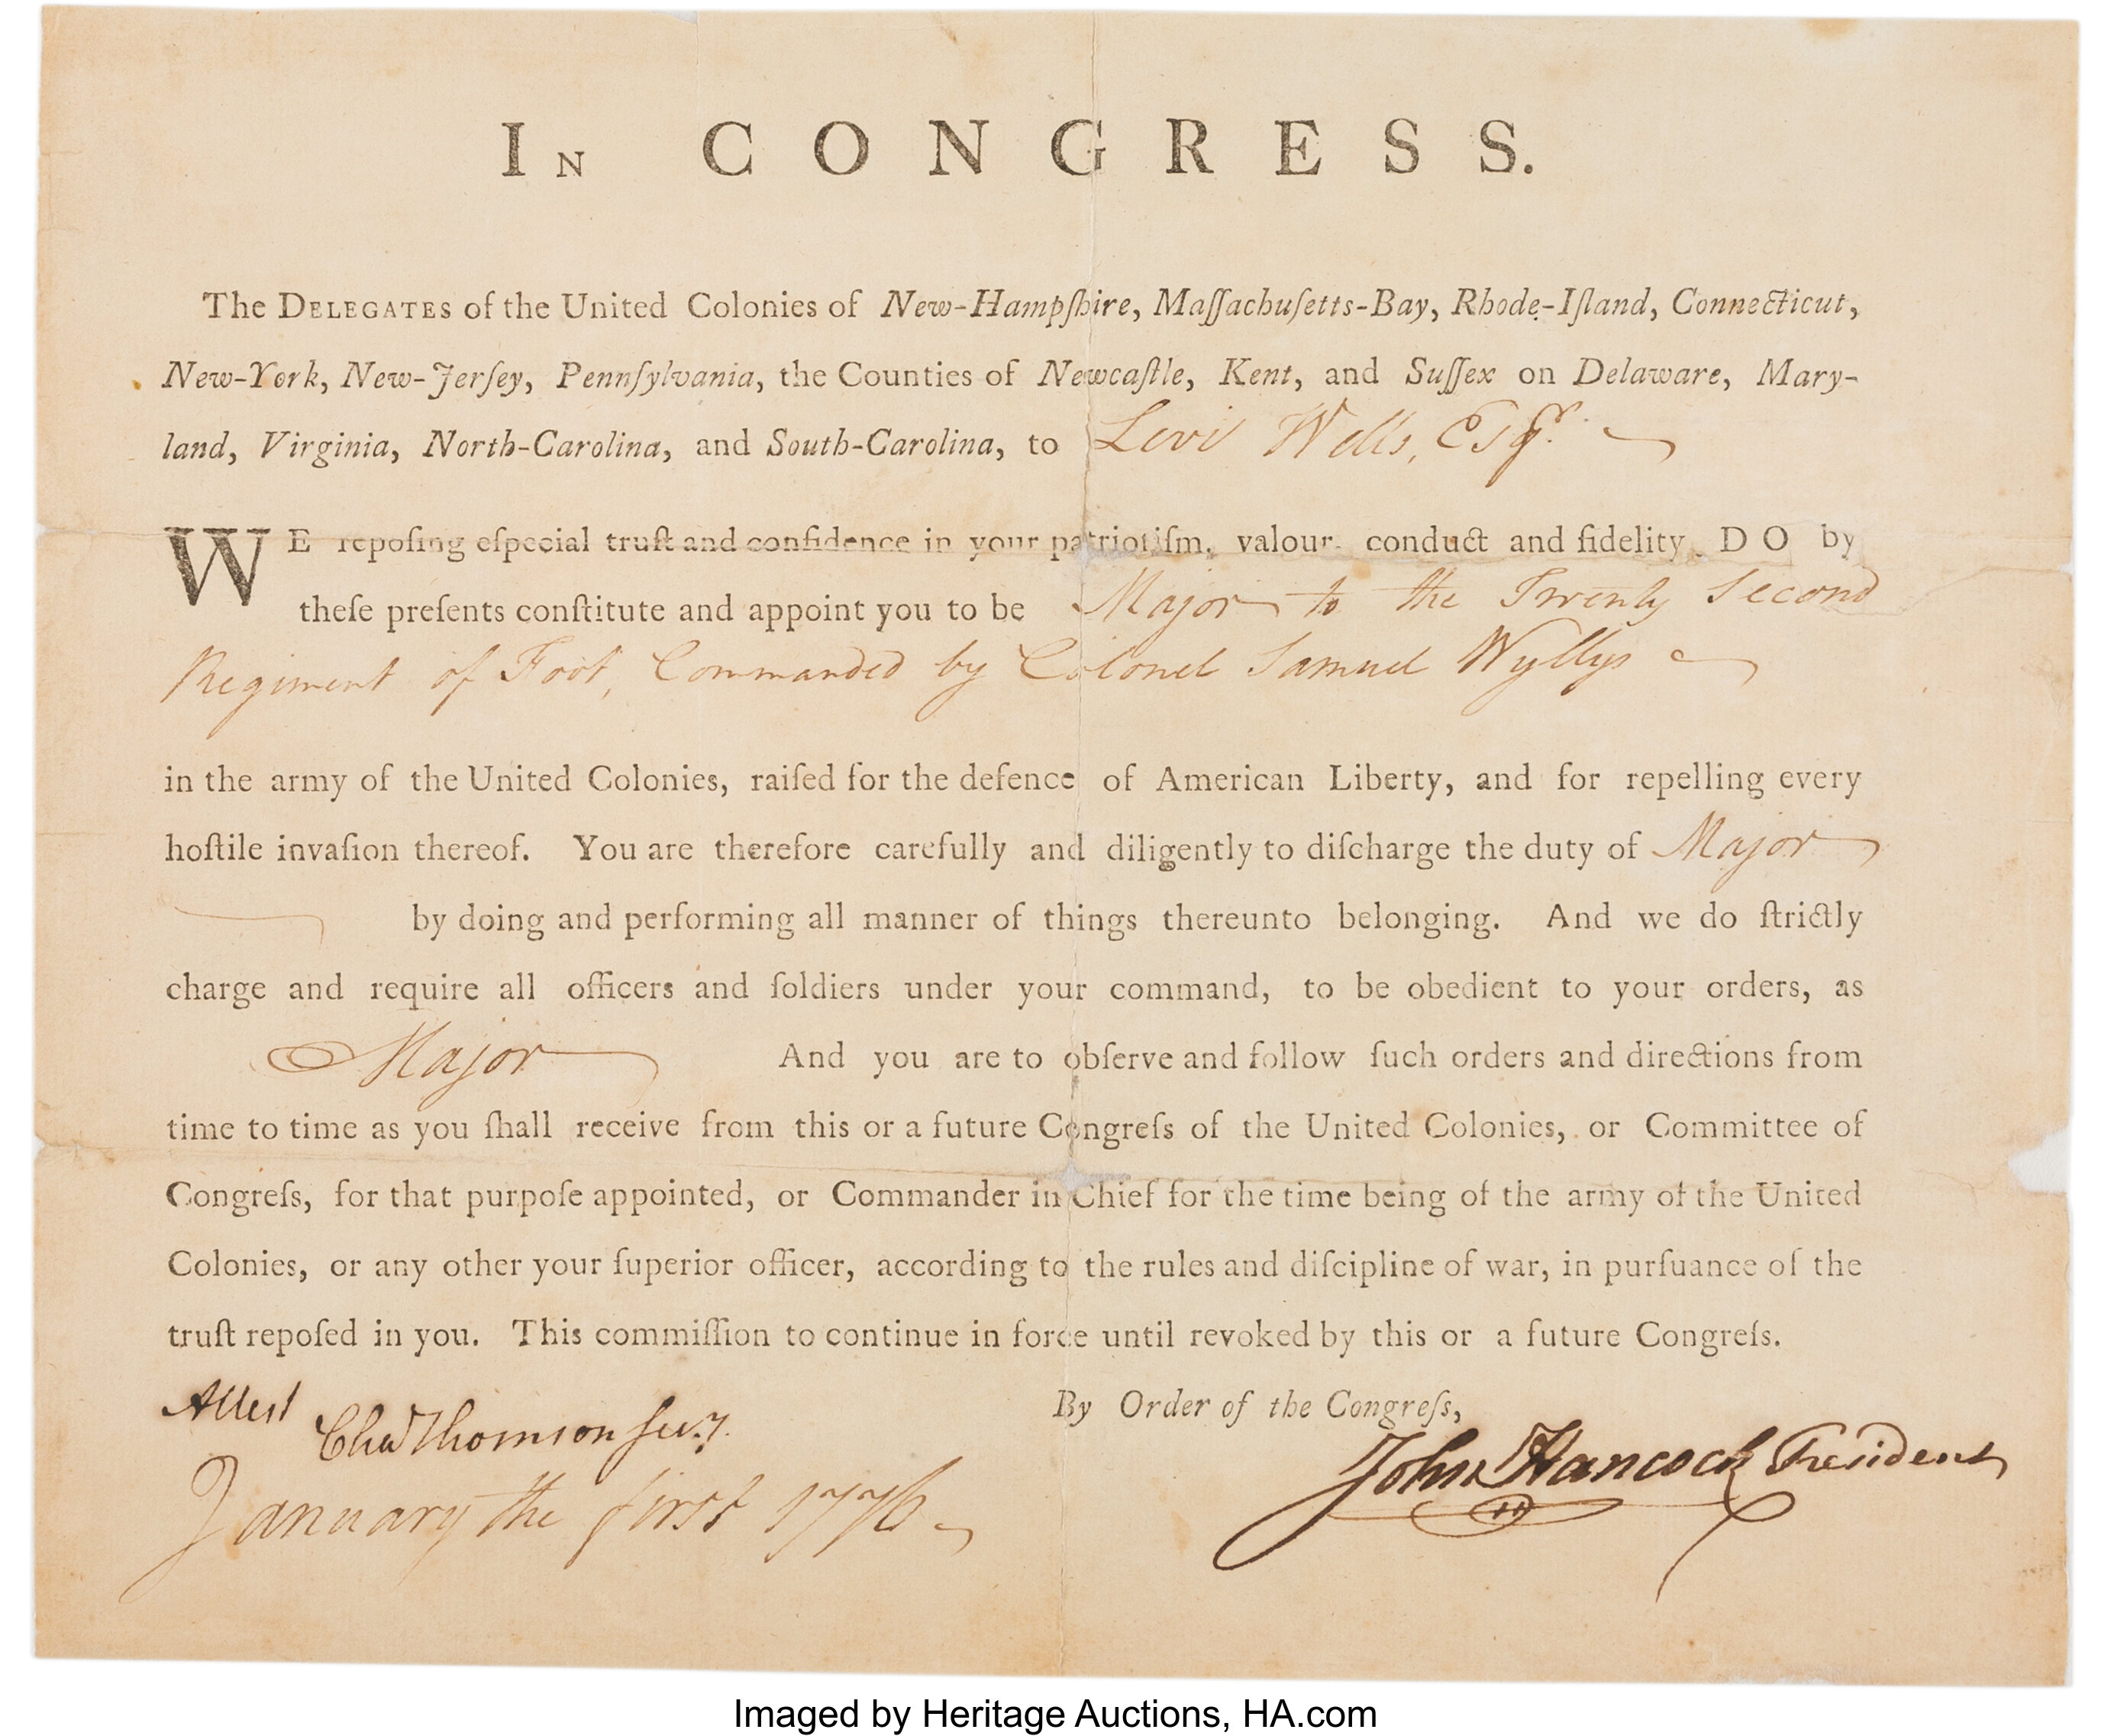 In CONGRESS.
The DELEGATES of the United Colonies of New-Hampſhire, Maſſachuſetts-Bay, Rhode-Iſland, Connecticut,
New-York, New-Jerſey, Pennſylvania, the Counties of Newcaſtle, Kent, and Suſſex on Delaware, Mary-
land, Virginia, North-Carolina, and South-Carolina, to Levi Wells, Esqr.
WE repoſing eſpecial truſt and confidence in your patriotiſm, valour, conduct and fidelity, DO by
theſe preſents conſtitute and appoint you to be Major to the Twenty Second
Regiment of Foot, Commanded by Colonel Samuel Wyllys
in the army of the United Colonies, raiſed for the defence of American Liberty, and for repelling every
hoſtile invaſion thereof. You are therefore carefully and diligently to diſcharge the duty of Major
by doing and performing all manner of things thereunto belonging. And we do ſtrictly
charge and require all officers and ſoldiers under your command, to be obedient to your orders, as
Major And you are to obſerve and follow ſuch orders and directions from
time to time as you ſhall receive from this or a future Congreſs of the United Colonies, or Committee of
Congreſs, for that purpoſe appointed, or Commander in Chief for the time being of the army of the United
Colonies, or any other your ſuperior officer, according to the rules and diſcipline of war, in purſuance of the
truſt repoſed in you. This commiſſion to continue in force until revoked by this or a future Congreſs.
By Order of the Congreſs,
Attest Chas Thomson Secy.
John Hancock President
January the first 1776
Imaged by Heritage Auctions, HA.com